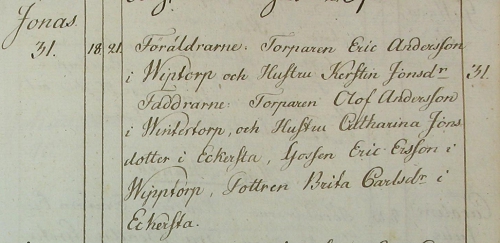 Jonas.
31. 18. 21. Föräldrarne: Torparen Eric Andersson 31.
i Wiptorp och Hustru Kerstin Jönsdr
Faddrarne: Torparen Olof Andersson
i Wintertorp, och Hustru Catharina Jöns
dotter i Eckersta, Gossen Eric Ersson i
Wipptorp, Dottren Brita Carlsdr i
Eckersta.